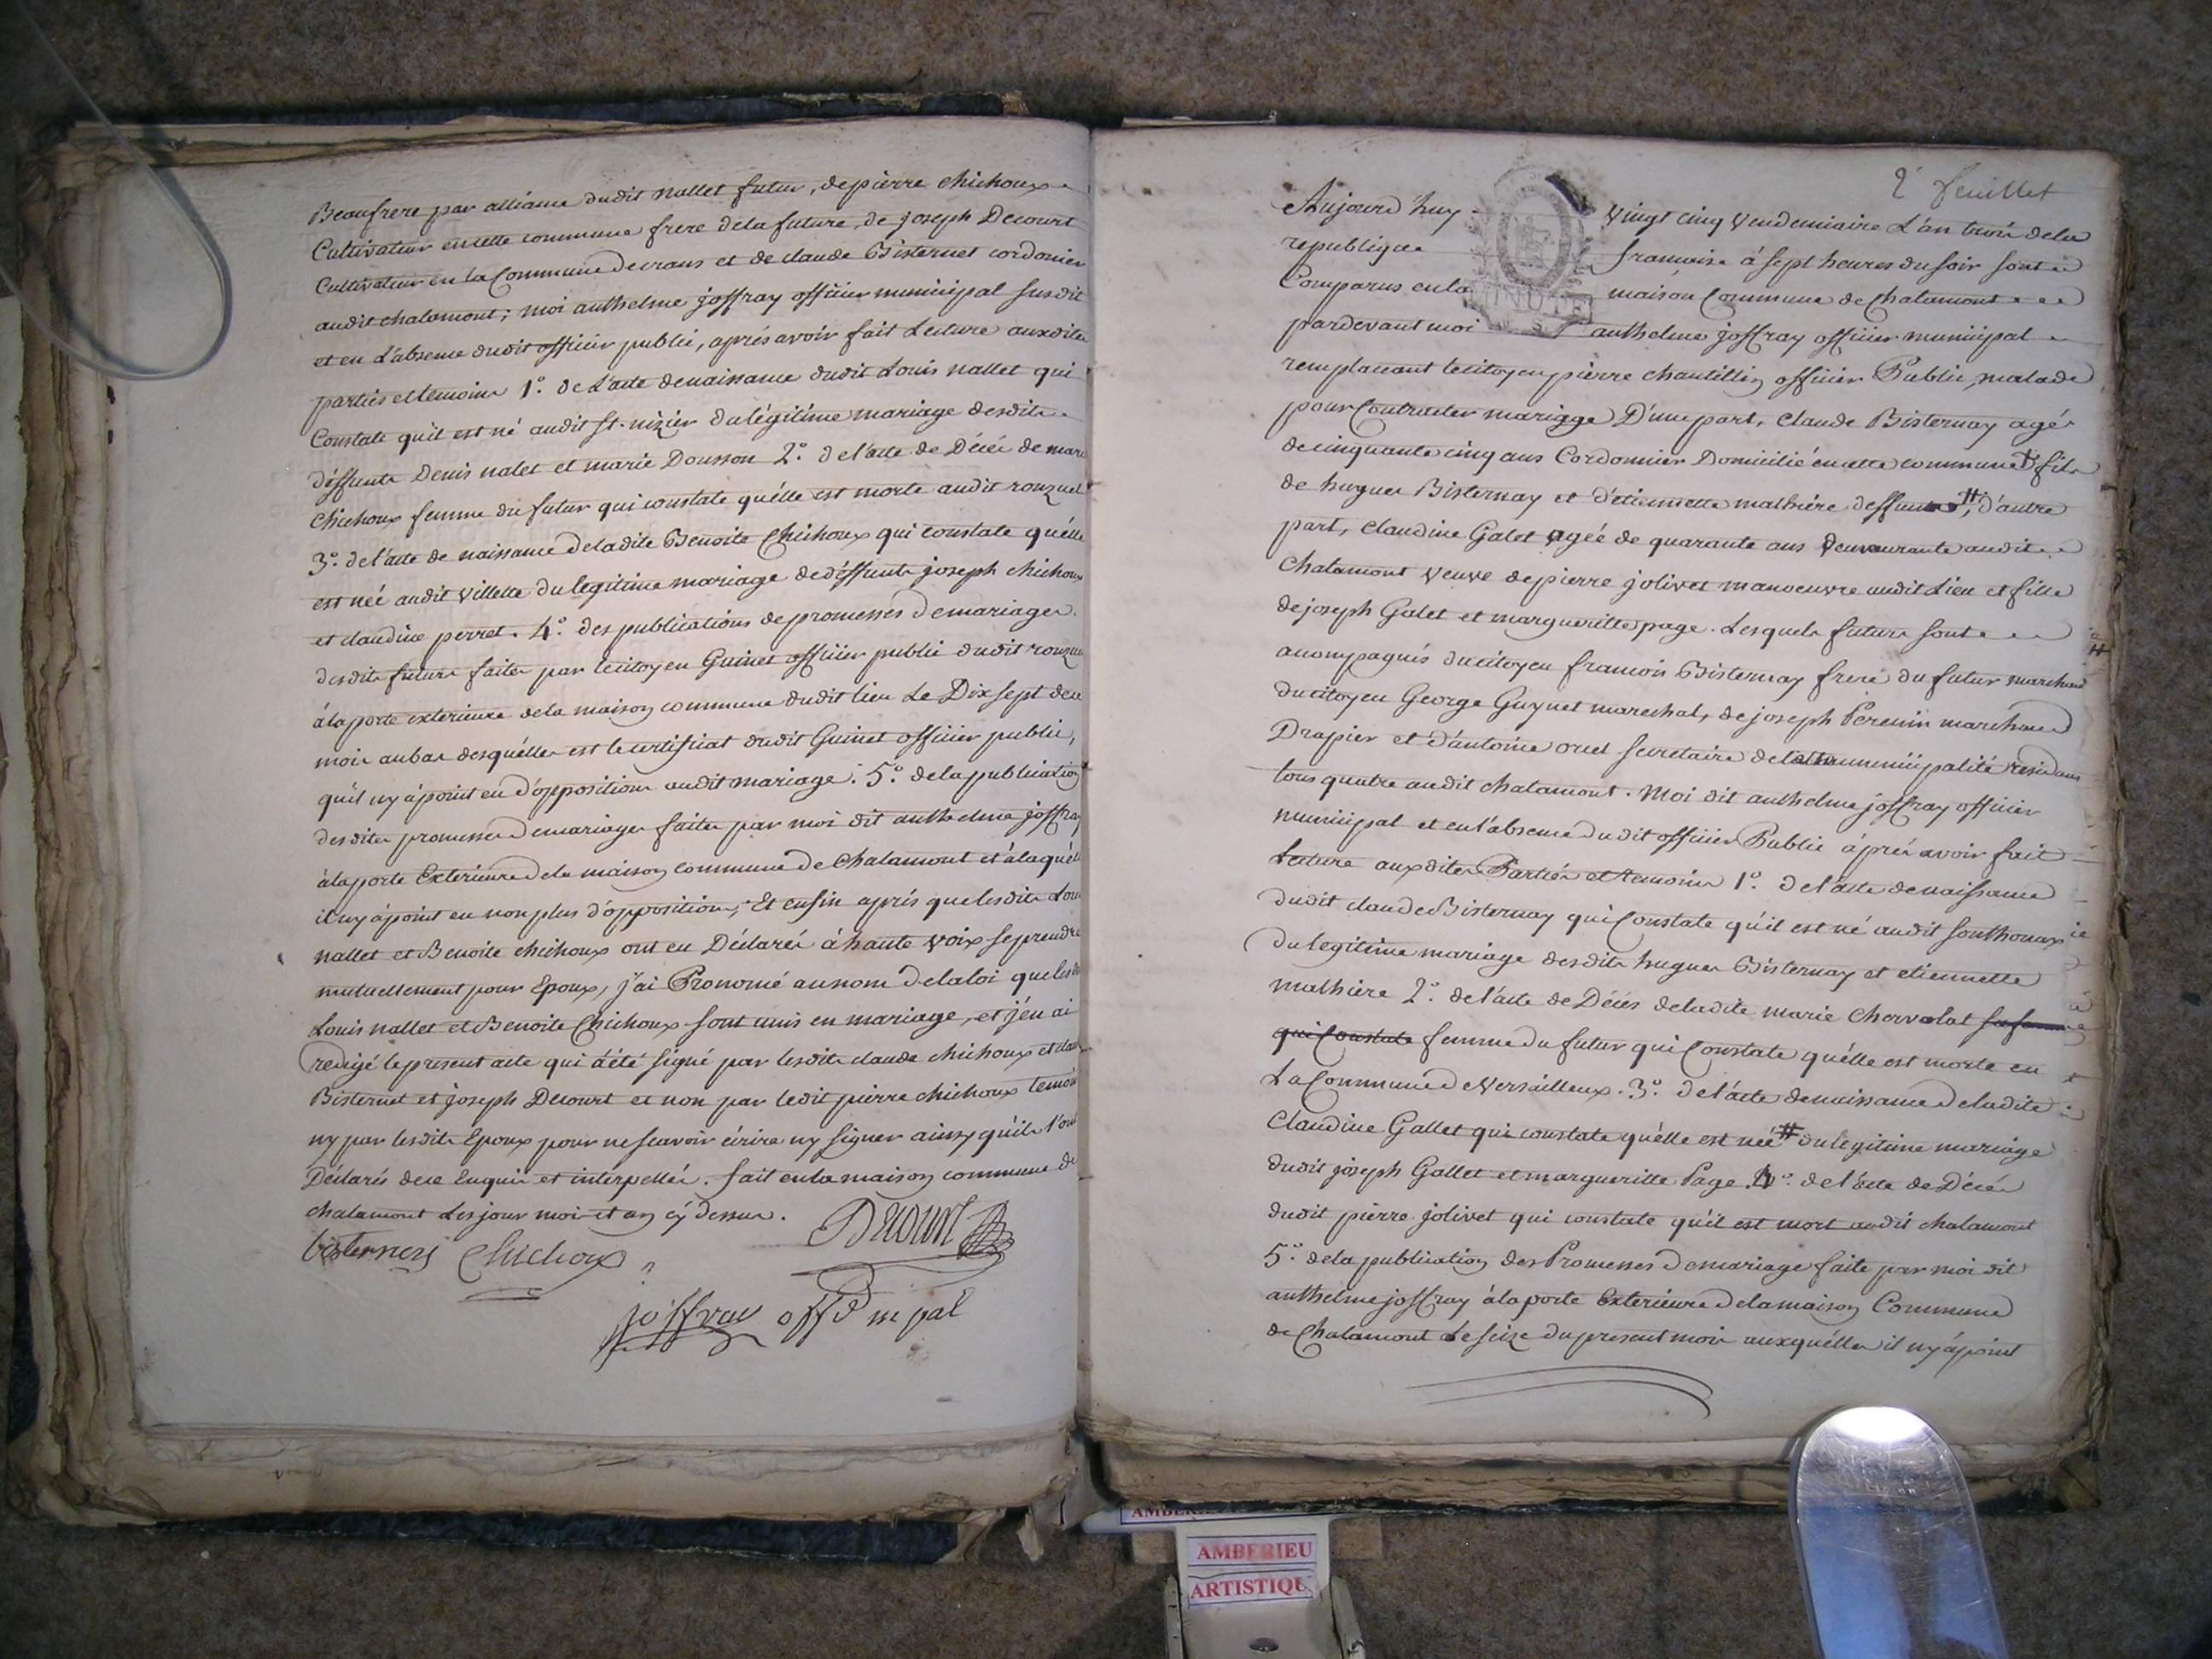 Beaufrere par alliance dudit nallet futur, de pierre chichoux
Cultivateur en cette commune frere de la future, de joseph Decourt
Cultivateur en la Commune de crans et de claude Bisternet cordonier
audit chalamont; moi anthelme joffray officier municipal susdit
et en l'absence dudit officier public, aprés avoir fait Lecture auxdites
parties et temoins 1.º de l'acte de naissance dudit Louis nallet qui
Constate qu'il est né audit St. nizier du légitime mariage desdits
déffunts Denis nalet et marie Dousson 2.º de l'acte de Décés de marie
Chichoux femme du futur qui constate qu'elle est morte audit ronzuel
3.º de l'acte de naissance de ladite Benoite Chichoux qui constate qu'elle
est née audit villette du legitime mariage de déffunts joseph chichoux
et claudine perret. 4.º des publications de promesses de mariages
desdits futurs faites par le citoyen Guinet officier public dudit ronzuel
à la porte exterieure de la maison commune dudit lieu Le Dix sept de ce
mois au bas desquélles est le certificat dudit Guinet officier public,
qu'il ny à point eu d'oppositions audit mariage. 5.º de la publication
desdites promesses de mariages faites par moi dit anthelme joffray
à la porte Exterieure de la maison commune de chalamont et à laquélle
il ny à point eu non plus d'oppositions; Et enfin aprés que lesdits Louis
nallet et Benoite chichoux ont eu Déclarés à haute voix se prendre
mutuellement pour Epoux, j'ai Prononcé au nom de la loi que lesdits
Louis nallet et Benoite Chichoux sont unis en mariage, et j'en ai
redigé le present acte qui à été signé par lesdits claude chichoux et claude
Bisternet et joseph Decourt et non par ledit pierre chichoux temoin
ny par lesdits Epoux pour ne scavoir écrire ny signer ainsy qu'ils l'ont
Déclarés de ce Enquis et interpellés. fait en la maison commune de
chalamont Les jour mois et an cy dessus.
Decourt
bisternay Chichoux
joffray off m pal
2e feuillet
Aujourd'huy vingt cinq vendemiaire L'an trois de la
republique francaise à sept heures du soir sont
Comparus en la maison Commune de Chalamont
MINUTE
pardevant moi anthelme joffray officier municipal
remplacant le citoyen pierre chantillin officier Public malade
pour Contracter mariagge D'une part, Claude Bisternay agé
de cinquante cinq ans Cordonnier Domicilié en cette commune # fils
de hugues Bisternay et d'étiennette mathiére deffunts #, d'autre
part, Claudine Galet agée de quarante ans Demeurante audit
Chalamont veuve de pierre jolivet manoeuvre audit Lieu et fille
de joseph Galet et margueritte page. Lesquels futurs sont
accompagnés du citoyen francois Bisternay frere du futur marchand
du citoyen George Guynet marechal, de joseph Perenin marchand
Drapier et d'antoine oriel secretaire de la municipalité residans
tous quatre audit chalamont. Moi dit anthelme joffray officier
municipal et en l'absence du dit officier Public àprés avoir fait
Lecture auxdites Parties et temoins 1.º de l'acte de naissance
dudit claude Bisternay qui Constate qu'il est né audit Sonthonax
du legitime mariage desdits hugues Bisternay et etiennette
mathiere 2.º de l'acte de Décés de ladite marie Chervolat
qui Constate femme du futur qui Constate qu'elle est morte en
La Commune de Versailleux. 3.º de l'acte de naissance de ladite
Claudine Gallet qui constate qu'elle est née # du legitime mariage
dudit joseph Gallet et margueritte Page. 4.º de l'acte de Décés
dudit pierre jolivet qui constate qu'il est mort audit chalamont
5.º de la publication des Promesses de mariage faite par moi dit
anthelme joffray à la porte Exterieure de la maison Commune
de Chalamont Le seize du present mois auxquélles il ny à point
AMBERIEU
ARTISTIQU